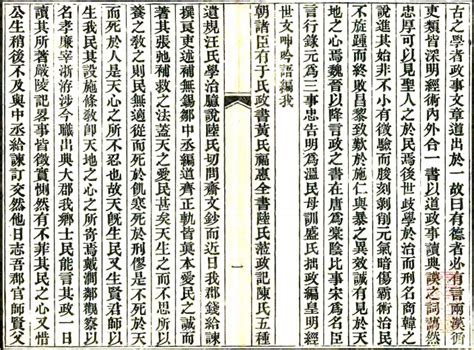 古之學者政事文章道出於一故曰有德者必有言兩漢循
吏類皆深明經術內外合一書以道政事讀典謨之詞藹然
忠厚可以見聖人之於民焉後世歧學於治而刑名商韓之
說進其始非不小有效驗而朘刻剝削元氣暗傷霸術治民
不旋踵而終敗昌黎致歎於施仁與暴之異效誠有見於斯
心術之焉魏晉以降言政之書在唐為棠陰比事宋為名臣
言行錄元為三事忠告明為溫氏母訓盛氏拙政編皇明經
世文呻吟語編我
一
朝諸臣有于氏政書黃氏福惠全書陸氏蒞政記陳氏五種
遺規汪氏學治臆說陸氏切問齋文鈔而近日我郡錢給諫
撰良吏述補無錫鄒中丞編道齊正軌皆與本愛民之誠而
著其張弛補救之法蓋天之愛民甚矣天生之而不思所以
養之教之則民無適從而死於飢寒死於刑僇是不死於天
而死於人是天心之所不忍也故天旣生民又生賢君師以
生我民其設施條教卽天地之心之所寄焉戴澗鄰觀察以
名孝廉宰浙洊涉今職出典大郡我鄉士民能言其政一日
讀其所著嚴陵記畧事皆徵實惻然有其民之心又惜
公生稍後不及與中丞給諫訂交然他日志吾郡官師賢父